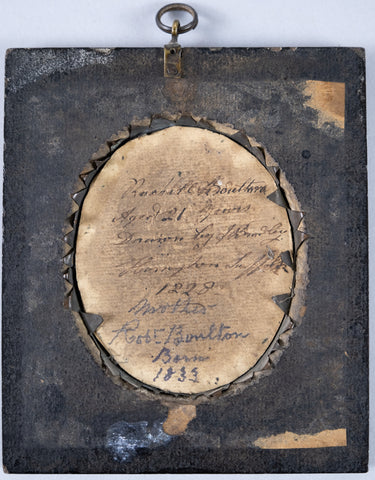 Boulton
Aged 21 Years
Drawn by J Bradley
Suffolk
1829
Mother
Robt Boulton
Born
1833